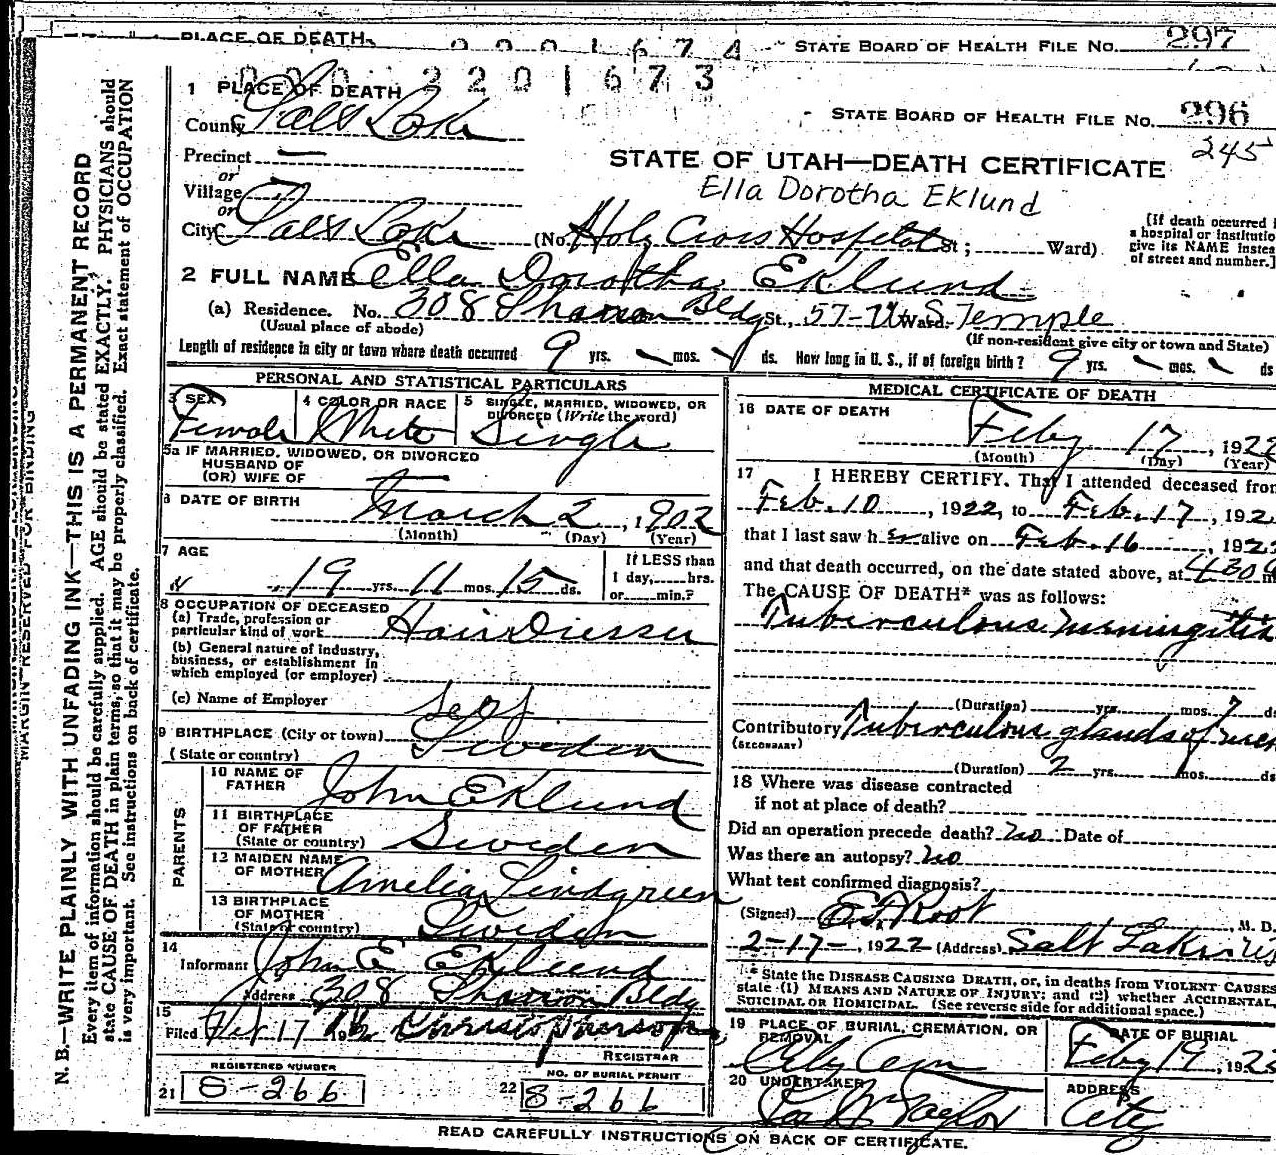 PLACE OF DEATH
2201674
STATE BOARD OF HEALTH FILE No. 297
000 2201673
1 PLACE OF DEATH
County Salt Lake
STATE BOARD OF HEALTH FILE No. 296
245
Precinct —
or
Village
or
City Salt Lake (No. Holy Cross Hospital St; Ward)
STATE OF UTAH—DEATH CERTIFICATE
Ella Dorotha Eklund
(If death occurred i
a hospital or institutio
give its NAME instea
of street and number.]
2 FULL NAME Ella Dorotha Eklund
(a) Residence. No. 308 Sharon Bldg St., 57-W. Ward. S. Temple
(Usual place of abode) (If non-resident give city or town and State)
Length of residence in city or town where death occurred 9 yrs. mos. ds. How long in U. S., if of foreign birth? 9 yrs. mos. ds
PERSONAL AND STATISTICAL PARTICULARS
3 SEX Female
4 COLOR OR RACE White
5 SINGLE, MARRIED, WIDOWED, OR DIVORCED (Write the word) Single
5a IF MARRIED, WIDOWED, OR DIVORCED
HUSBAND OF
(OR) WIFE OF
6 DATE OF BIRTH March 2, 1902
(Month) (Day) (Year)
7 AGE 19 yrs. 11 mos. 15 ds.
If LESS than
1 day, hrs.
or min.?
8 OCCUPATION OF DECEASED
(a) Trade, profession or
particular kind of work Hair Dresser
(b) General nature of industry,
business, or establishment in
which employed (or employer)
(c) Name of Employer Self
9 BIRTHPLACE (City or town) Sweden
(State or country)
PARENTS
10 NAME OF FATHER John Eklund
11 BIRTHPLACE OF FATHER Sweden
(State or country)
12 MAIDEN NAME OF MOTHER Amelia Lindgreen
13 BIRTHPLACE OF MOTHER Sweden
(State or country)
14
Informant John E Eklund
Address 308 Sharon Bldg
15
Filed Feb 17 192
REGISTRAR
REGISTERED NUMBER
21 S-266
NO. OF BURIAL PERMIT
22 S-266
MEDICAL CERTIFICATE OF DEATH
16 DATE OF DEATH
Feby 17, 1922
(Month) (Day) (Year)
17 I HEREBY CERTIFY. That I attended deceased from
Feb. 10, 1922, to Feb. 17, 192
that I last saw h er alive on Feb. 16, 1922
and that death occurred, on the date stated above, at 430 a m
The CAUSE OF DEATH* was as follows:
Tuberculous meningitis
(Duration) yrs. mos. 7 ds
Contributory Tuberculous glands of neck
(SECONDARY)
(Duration) 2 yrs. mos. ds
18 Where was disease contracted
if not at place of death?
Did an operation precede death? no Date of
Was there an autopsy? no
What test confirmed diagnosis?
(Signed) E F Root, M. D.
2-17-, 1922 (Address) Salt Lake, Ut
* State the DISEASE CAUSING DEATH, or, in deaths from VIOLENT CAUSES
state (1) MEANS AND NATURE OF INJURY; and (2) whether ACCIDENTAL,
SUICIDAL OR HOMICIDAL. (See reverse side for additional space.)
19 PLACE OF BURIAL, CREMATION, OR REMOVAL City Cem
DATE OF BURIAL Feby 19, 192
20 UNDERTAKER Taylor
ADDRESS City
READ CAREFULLY INSTRUCTIONS ON BACK OF CERTIFICATE.
MARGIN RESERVED FOR BINDING
N. B.—WRITE PLAINLY WITH UNFADING INK—THIS IS A PERMANENT RECORD
Every item of information should be carefully supplied. AGE should be stated EXACTLY. PHYSICIANS should
state CAUSE OF DEATH in plain terms, so that it may be properly classified. Exact statement of OCCUPATION
is very important. See instructions on back of certificate.